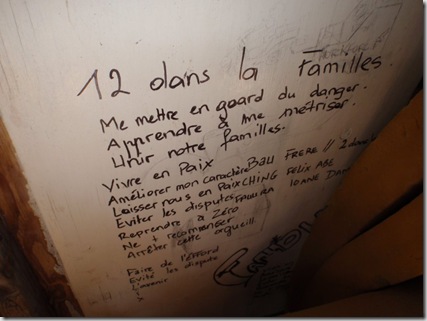 12 dans la Familles.
Me mettre en goard du danger.
Apprendre à me métriser.
Unir notre familles.
Vivre en Paix
Améliorer mon caractère BALI FRERE //
Laisser nous en Paix CHING FELIX ABE
Eviter les disputes IOANE
Reprendre à Zéro
Ne + recommenser
Arrêter cette orgueill
Faire de l'éfford
Evité les dispute
L'avenir